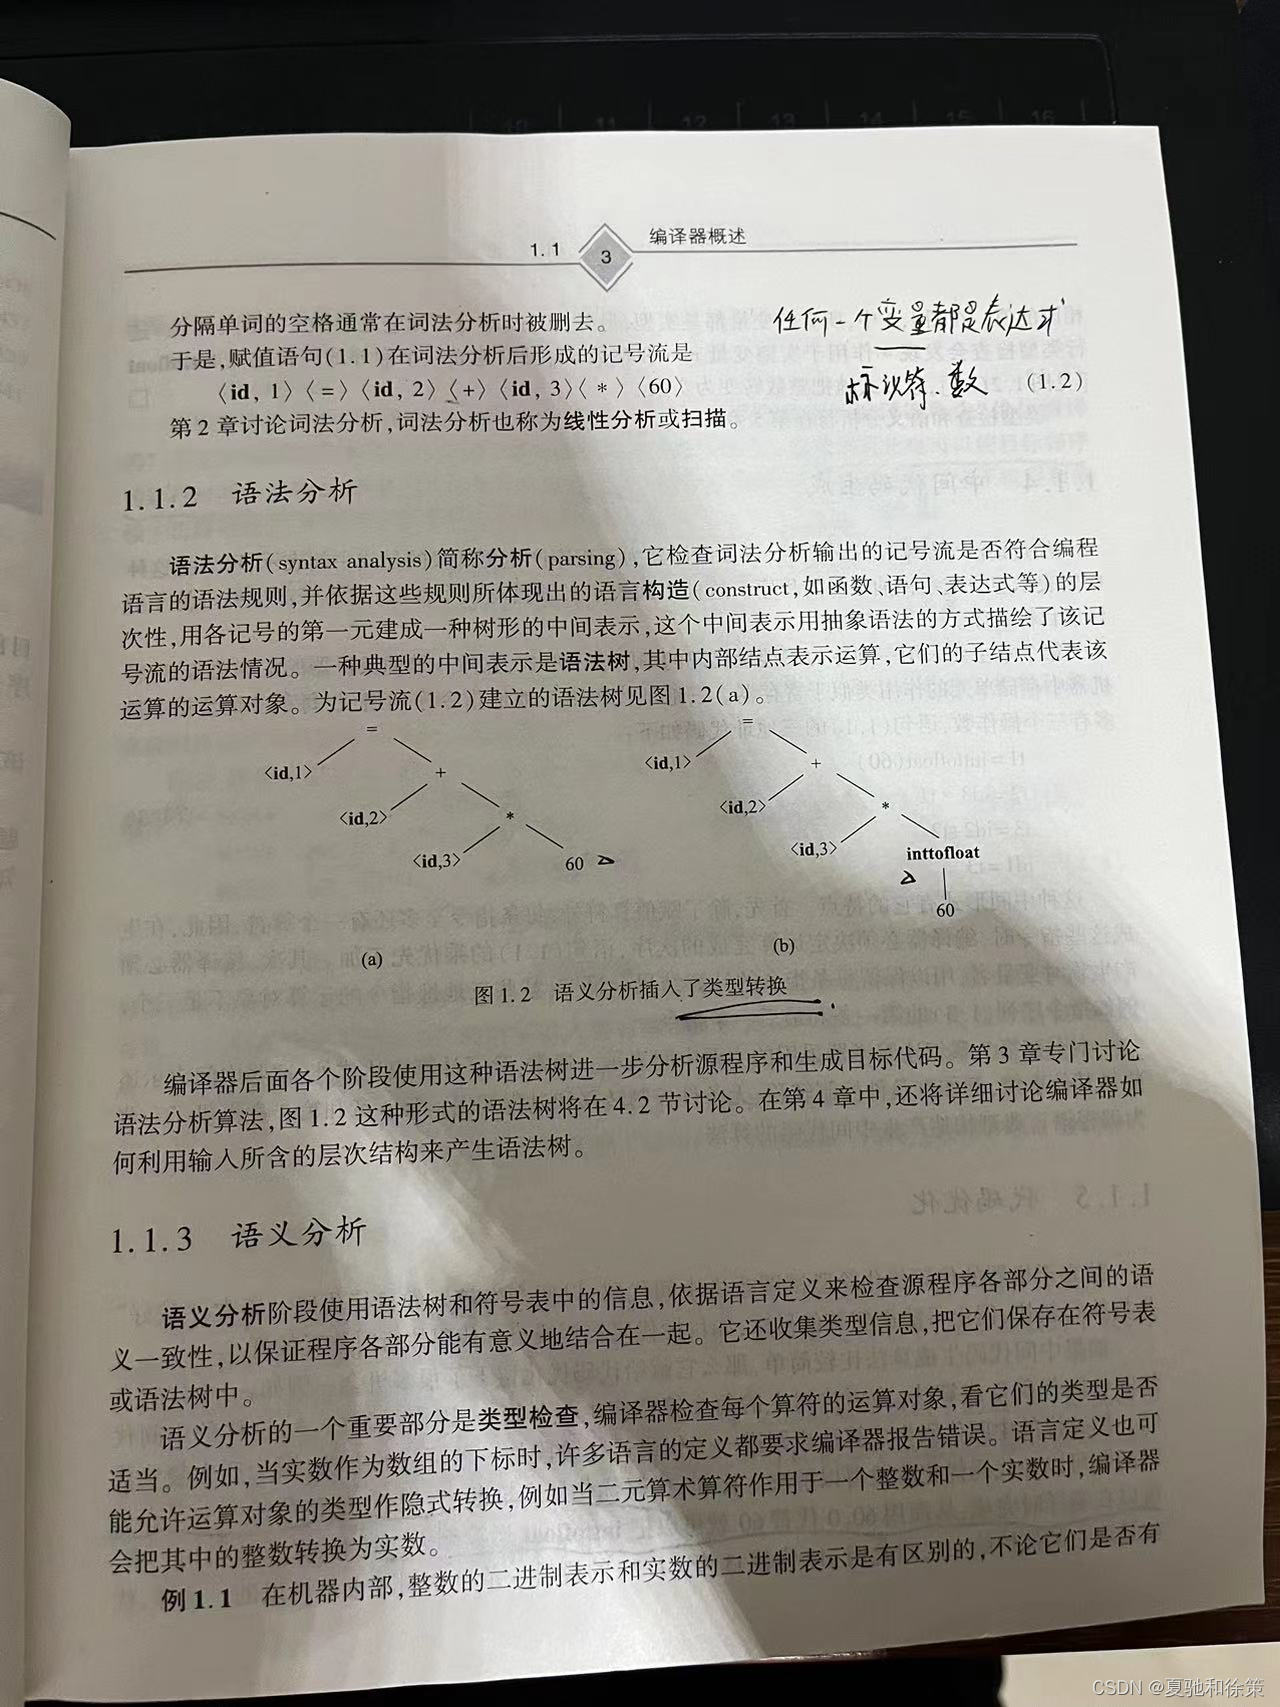 1.1 3 编译器概述
分隔单词的空格通常在词法分析时被删去。
任何一个变量都是表达式
于是,赋值语句(1.1)在词法分析后形成的记号流是
〈id, 1〉〈=〉〈id, 2〉〈+〉〈id, 3〉〈*〉〈60〉 (1.2)
标识符、数
第2章讨论词法分析,词法分析也称为线性分析或扫描。
1.1.2 语法分析
语法分析(syntax analysis)简称分析(parsing),它检查词法分析输出的记号流是否符合编程
语言的语法规则,并依据这些规则所体现出的语言构造(construct,如函数、语句、表达式等)的层
次性,用各记号的第一元建成一种树形的中间表示,这个中间表示用抽象语法的方式描绘了该记
号流的语法情况。一种典型的中间表示是语法树,其中内部结点表示运算,它们的子结点代表该
运算的运算对象。为记号流(1.2)建立的语法树见图1.2(a)。
=
<id,1>
+
<id,2>
*
<id,3>
60
(a)
=
<id,1>
+
<id,2>
*
<id,3>
inttofloat
60
(b)
图1.2 语义分析插入了类型转换
编译器后面各个阶段使用这种语法树进一步分析源程序和生成目标代码。第3章专门讨论
语法分析算法,图1.2这种形式的语法树将在4.2节讨论。在第4章中,还将详细讨论编译器如
何利用输入所含的层次结构来产生语法树。
1.1.3 语义分析
语义分析阶段使用语法树和符号表中的信息,依据语言定义来检查源程序各部分之间的语
义一致性,以保证程序各部分能有意义地结合在一起。它还收集类型信息,把它们保存在符号表
或语法树中。
语义分析的一个重要部分是类型检查,编译器检查每个算符的运算对象,看它们的类型是否
适当。例如,当实数作为数组的下标时,许多语言的定义都要求编译器报告错误。语言定义也可
能允许运算对象的类型作隐式转换,例如当二元算术算符作用于一个整数和一个实数时,编译器
会把其中的整数转换为实数。
例1.1 在机器内部,整数的二进制表示和实数的二进制表示是有区别的,不论它们是否有
CSDN @夏驰和徐策